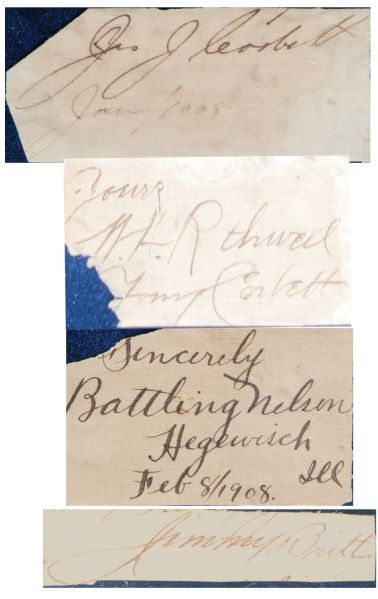 Jas J Corbett
Jan 1/1908
Yours
W. H. Rothwell
Young Corbett
Sincerely
Battling Nelson
Hegewisch
Ill
Feb 8/1908.
Jimmy Britt.